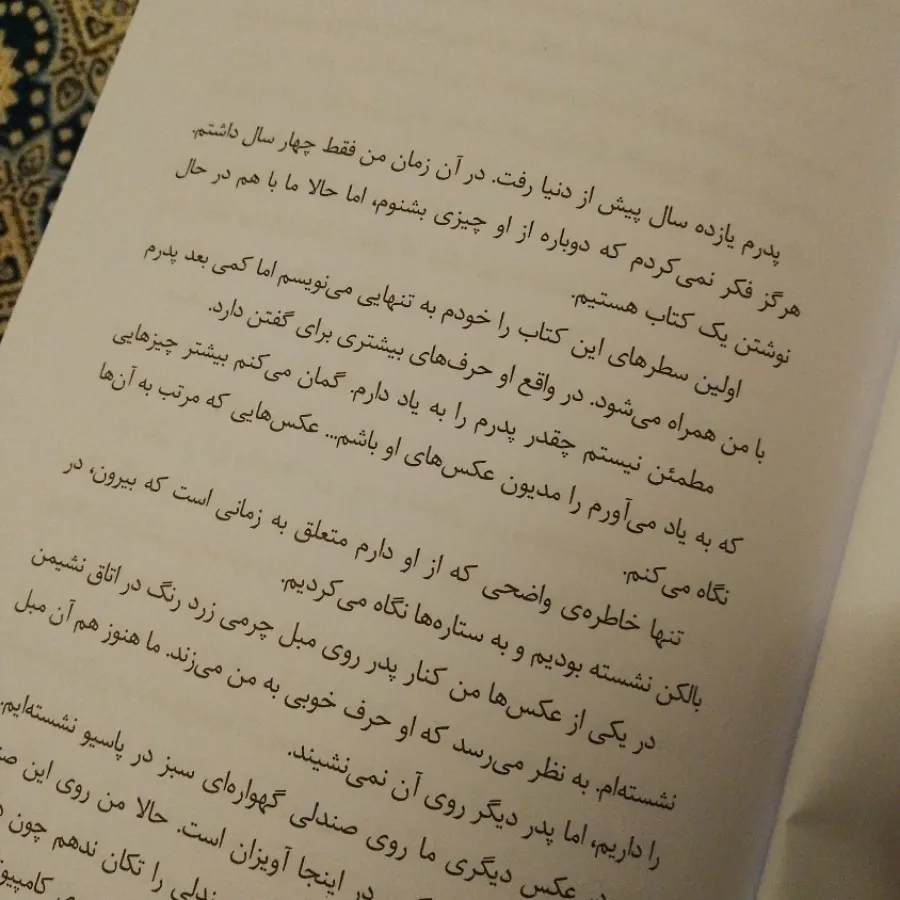 پدرم یازده سال پیش از دنیا رفت. در آن زمان من فقط چهار سال داشتم.
هرگز فکر نمی‌کردم که دوباره از او چیزی بشنوم، اما حالا ما با هم در حال
نوشتن یک کتاب هستیم.
اولین سطرهای این کتاب را خودم به تنهایی می‌نویسم اما کمی بعد پدرم
با من همراه می‌شود. در واقع او حرف‌های بیشتری برای گفتن دارد.
مطمئن نیستم چقدر پدرم را به یاد دارم. گمان می‌کنم بیشتر چیزهایی
که به یاد می‌آورم را مدیون عکس‌های او باشم... عکس‌هایی که مرتب به آن‌ها
نگاه می‌کنم.
تنها خاطره‌ی واضحی که از او دارم متعلق به زمانی است که بیرون، در
بالکن نشسته بودیم و به ستاره‌ها نگاه می‌کردیم.
در یکی از عکس‌ها من کنار پدر روی مبل چرمی زرد رنگ در اتاق نشیمن
نشسته‌ام. به نظر می‌رسد که او حرف خوبی به من می‌زند. ما هنوز هم آن مبل
را داریم، اما پدر دیگر روی آن نمی‌نشیند.
عکس دیگری ما روی صندلی گهواره‌ای سبز در پاسیو نشسته‌ایم.
در اینجا آویزان است. حالا من روی این
را تکان ندهم چون